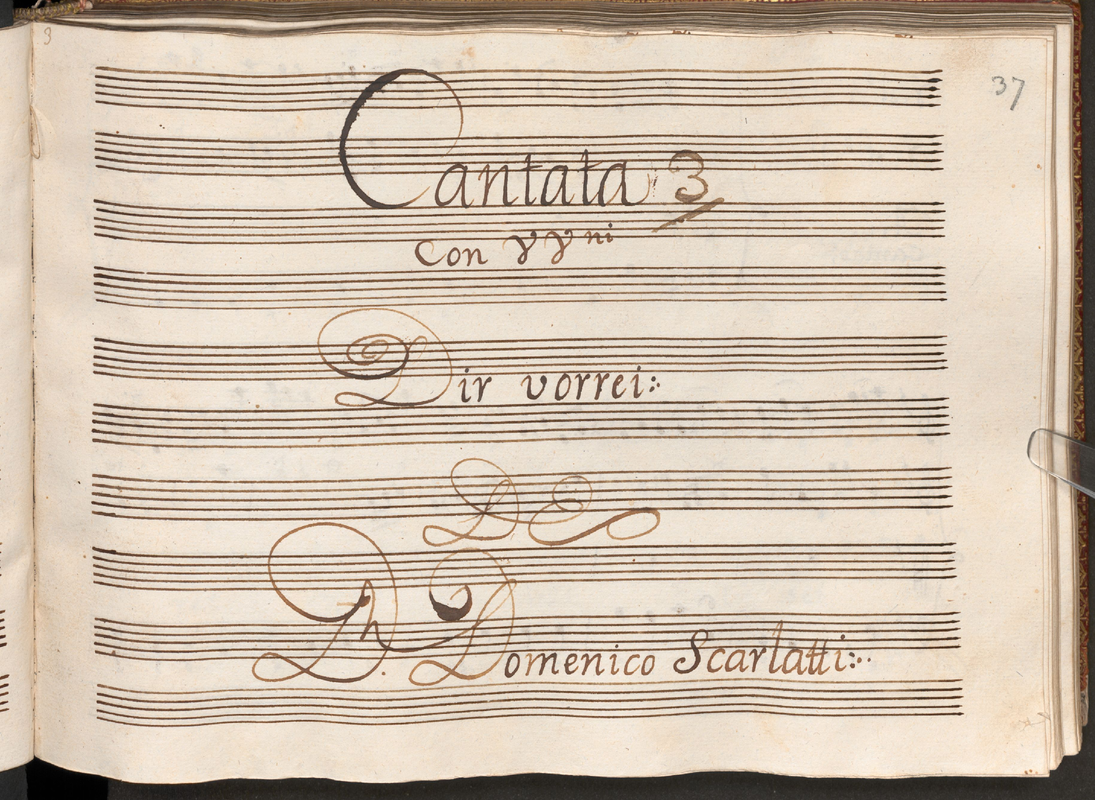 3
37
Cantata 3
Con VV ni
Dir vorrei
De
D. Domenico Scarlatti